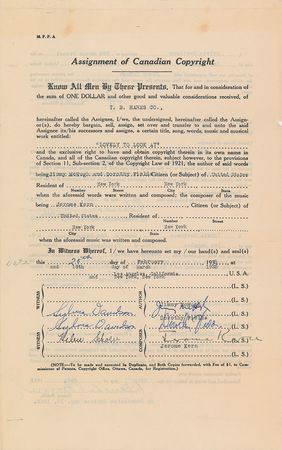 M. P. P. A
Assignment of Canadian Copyright
Know All Men By These Presents, That for and in consideration of
the sum of ONE DOLLAR and other good and valuable considerations received, of
T. B. HARMS CO.,
hereinafter called the Assignee, I/we, the undersigned, hereinafter called the Assign-
or(s), do hereby bargain, sell, assign, set over and transfer to and unto the said
Assignee its/his successors and assigns, a certain title, song, words; music and musical
work entitled:
"LOVELY TO LOOK AT"
and the exclusive right to have and obtain copyright therein in its own name in
Canada, and all of the Canadian copyright therein, subject however, to the provisions
of Section 11, Sub-section 2, of the Copyright Law of 1921, the author of said words
being Jimmy McHugh and Dorothy Fields Citizen (or Subject) of United States
Resident of New York New York
Number Street City State
when the aforesaid words were written and composed: and the composer of the music
being Jerome Kern Citizen (or Subject) of
United States Resident of
Number Street
New York New York
City State
when the aforesaid music was written and composed.
In Witness Whereof, I/we have hereunto set my/our hand(s) and seal(s)
this 26th day of February 1935 at
and 18th day of March 1935
Los Angeles, California U. S. A.
and New York, New York
WITNESS
AUTHOR
(L. S.)
Jimmy McHugh (L. S.)
Dorothy Fields (L. S.)
WITNESS
COMPOSER
(L. S.)
(L. S.)
Jerome Kern (L. S.)
(NOTE—To be made and executed in Duplicate, and Both Copies forwarded, with Fee of $1. to Com-
missioner of Patents, Copyright Office, Ottawa, Canada, for Registration.)